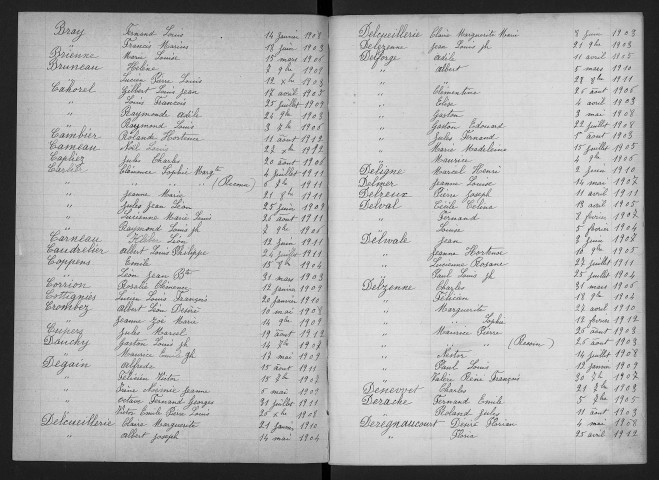 Bray Fernand Louis 14 janvier 1908
" Francis Marius 18 juin 1903
Brienne Marie Louise 15 mars 1906
Bruneau Hélène 7 9bre 1909
" Lucien Pierre Louis 12 xbre 1903
Cahorel Gilbert Louis Jean 17 avril 1905
" Louis François 25 juillet 1909
" Raymonde Adèle 24 9bre 1903
" Raymond Louis 3 1906
Cambier Rolande Hortense 11 août 1912
Cameau Noël Louis 27 xbre 1912
Caplier Jules Charles 20 août 1906
Clémence Sophie Margte 4 juillet 1911
" " " (Reconn) 6 1911
" Jeanne Marie 21 1911
" Jules Jean Léon 25 juin 1909
" Lucienne Marie Louise 26 août 1911
" Raymond Louis Jh 7 9bre 1906
Carneau Kléber Léon 12 juin 1911
Caudrelier Albert Louis Philippe 24 juillet 1911
Coppens Emile 15 9bre 1904
" Léon Jean Bte 31 mars 1903
Corrion Rosalie Clémence 12 janvier 1909
Cotignies Lucien Louis François 20 janvier 1910
Crombez Albert Léon Désiré 10 mai 1908
" Jeanne Zoé Marie 14 9bre 1909
Cuners Jules Marcel 19 août 1912
Dauchy Gaston Louis Jh 14 1907
" Maurice Jh 17 mai 1909
Degain Alfrede 15 août 1911
" Félicien Victor 15 1907
" Noémie Jeanne 5 mai 1905
" Octave Fernand Georges 31 juillet 1911
" Victor Emile Pierre Louis 25 xbre 1908
Delcueillerie Claire Marguerite 21 janvier 1910
" Albert Joseph 14 mai 1904
Delcueillerie Claire Marguerite Marie 8 juin 1903
Delezenne Jean Louis Jh 21 9bre 1903
Delforge Adèle 11 avril 1905
" Albert 5 mars 1910
" " 28 8bre 1911
" Clémentine 26 août 1906
" Elise 4 avril 1903
" Gaston 3 mai 1908
" Gaston Edouard 22 juillet 1908
" Jules Fernand 5 août 1903
" Marie Madeleine 15 juillet 1905
" Maurice 4 9bre 1906
Deligne Marcel Henri 2 juin 1910
Delmer Jeanne Louise 14 mai 1907
Delreux Pierre Joseph 11 avril 1911
Delval Cécile Célina 13 avril 1905
" Fernand 8 février 1907
" Louise 5 février 1904
Delvale Jean 2 juin 1907
" Jeanne Hortense 5 1905
" Lucienne Rosane 27 juillet 1911
" Paul Louis Jh 25 juillet 1904
Delzenne Charles 31 mars 1905
" Félicien 18 9bre 1904
" Marguerite 27 avril 1910
" " Sophie 12 février 1912
" Maurice Pierre 25 août 1903
" " " (Reconn) 25 août 1903
" Nestor 14 juillet 1908
" Paul Louis 12 janvier 1909
" Valère René François 30 1907
Denevret Charles 21 1903
Derache Fernand Emile 5 1905
" Roland Jules 11 août 1903
Deregnaucourt Denis Florian 4 mai 1908
" Floria 25 avril 1912